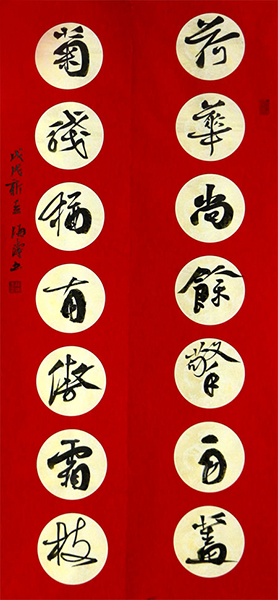 荷華尚餘擎雨蓋
菊殘猶有傲霜枝
戊戌